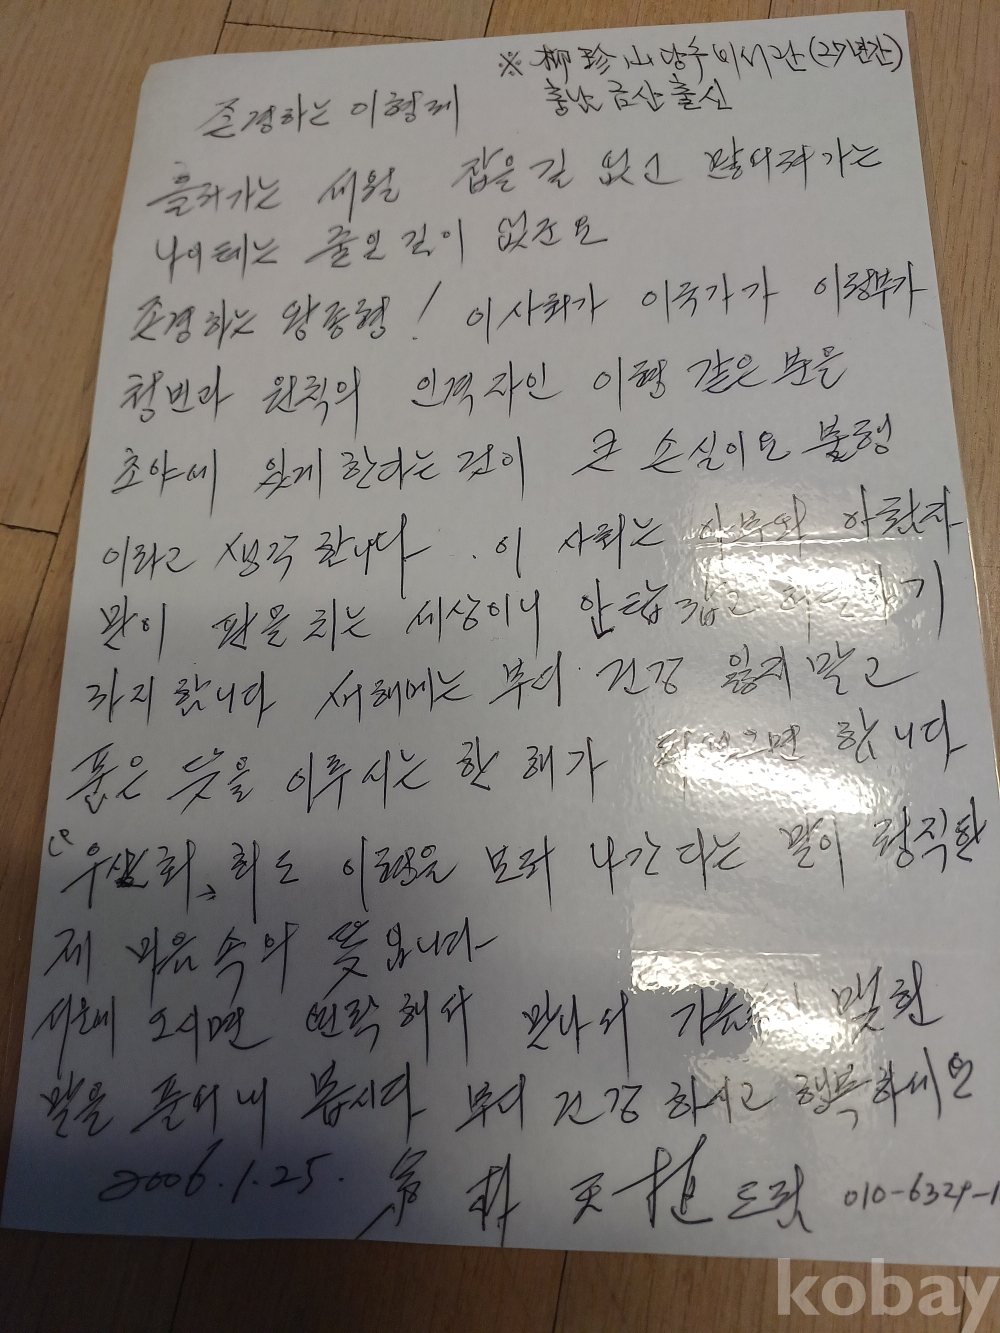 ※ 柳珍山 당수 비서관 (27년간)
충남 금산 출신
존경하는 이형께
흘러가는 세월 잡을 길 없고 많아져 가는
나이테는 줄일 길이 없군요
존경하는 왕종형! 이 사회가 이 국가가 이 정부가
청빈과 원칙의 인격자인 이형 같은 분을
초야에 있게 한다는 것이 큰 손실이요 불행
이라고 생각합니다. 이 사회는 아부와 아첨자
만이 판을 치는 세상이니 안타깝고
까지 합니다 새해에는 부디 건강 잃지 말고
품은 뜻을 이루시는 한 해가 되었으면 합니다
이형을 보러 나간다는 말이 정직한
제 마음속의 뜻입니다
서울에 오시면 연락해서 만나서 가슴에 맺힌
말을 풀어내 봅시다 부디 건강하시고 행복하세요
2006.1.25. 드림 010-6329-1
kobay